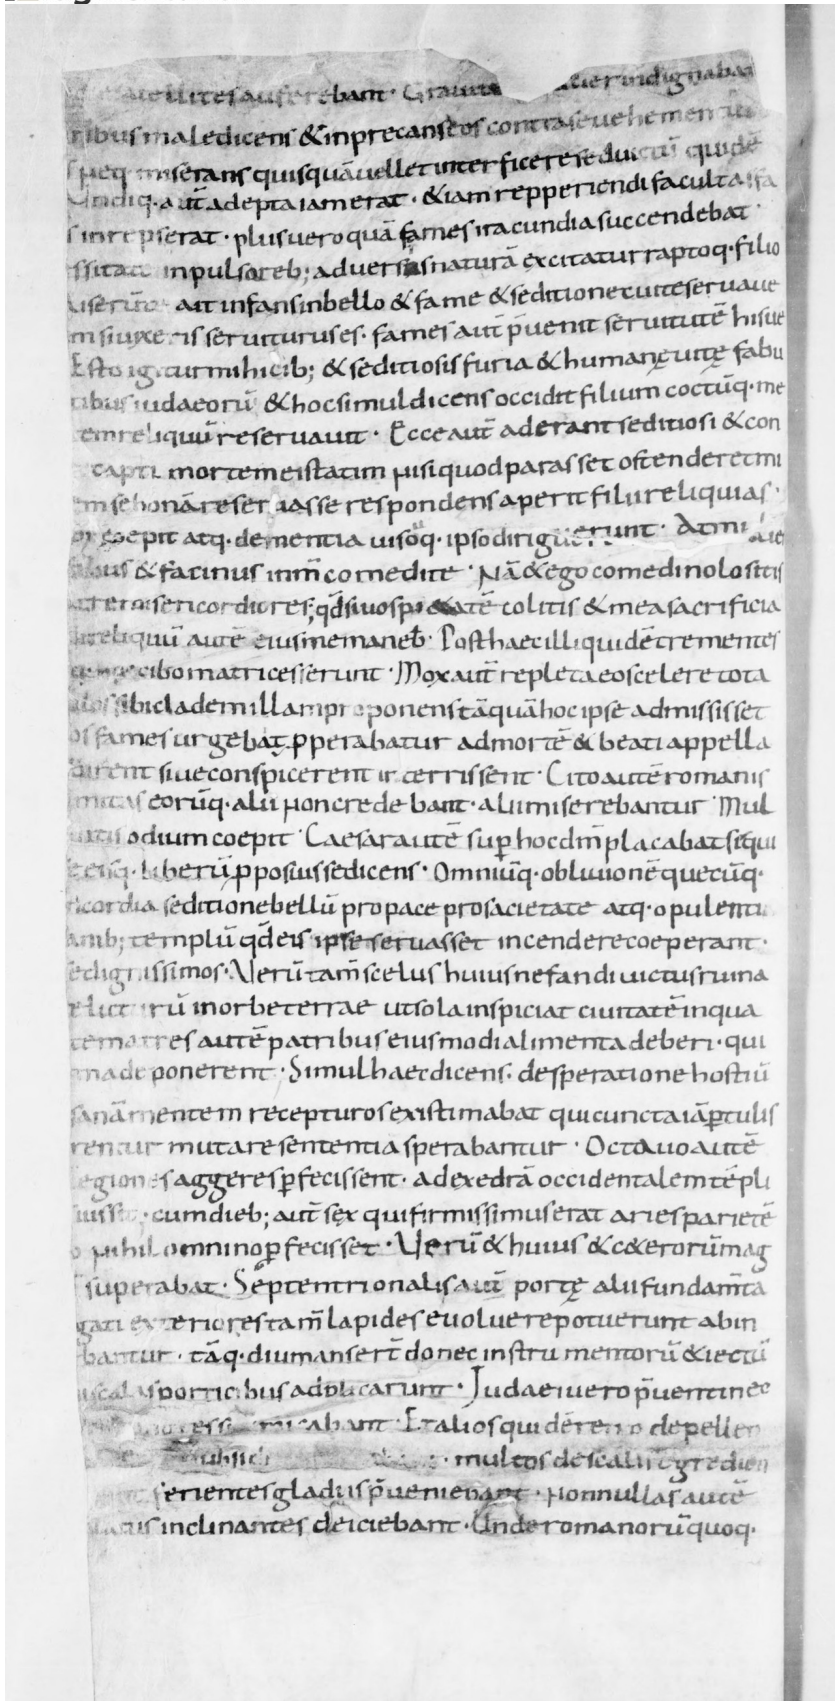 satellites auferebant · Grauite indignabat
ribus maledicens & inprecans eos contra se uehementius
miserans quisquā uellet interficere se quidē
undiq· aut̄ adepta iam erat · & iam repperiendi facultas
inrepserat · plus uero quā fames iracundia succendebat ·
ssitate inpulsoreb; aduersus naturā excitatur raptoq· filio
ait infans in bello & fame & seditione cui te seruaue
m si uixeris seruiturus es · fames aut̄ p̄uenit seruitutē his ue
Esto igitur mihi cib; & seditiosis furia & humanę uitę fabu
tibus iudaeorū & hoc simul dicens occidit filium coctūq· me
tem reliquū reseruauit · Ecce aut̄ aderant seditiosi & con
capti mortem ei statim nisi quod parasset ostenderet mi
em se bonā reseruasse respondens aperit filii reliquias ·
coepit atq· dementia uisoq· ipso diriguerunt · At mi
& facinus inm̄ comedite · Nā & ego comedi nolo sitis
misericordiores; qd̄ si uos pietatē colitis & mea sacrificia
reliquiū autē eius me maneb̄ · Post haec illi quidē trementes
cibo matri cesserunt · Mox aut̄ repleta eo scelere tota
sibi cladem illam proponens tāquā hoc ipse admississet
os fames urgebat pperabatur ad mortē & beati appella
dirent siue conspicerent ir cerrissent · Cito autē romanis
eorūq· alii non credebant · alii miserebantur · Mul
odium coepit · Caesar autē sup hoc dm̄ placabat se qui
eisq· liberū pposuisse dicens · Omniūq· obliuionē quecūq·
ricordia seditione bellū pro pace pro sacietate atq· opulentia
amb; templū qd̄ eis ipse seruasset incendere coeperant ·
se dignissimos · Uerū tam̄ scelus huius nefandi uictus ruina
relicturū in orbe terrae ut sola inspiciat ciuitatē in qua
te matres autē patribus eius modi alimenta deberi · qui
ma deponerent · Simul haec dicens · desperatione hostiū
sanā mentem recepturos existimabat qui cuncta iā ptulis
rentur mutare sententia sperabantur · Octauo autē
legiones aggeres pfecissent · ad exedrā occidentalem tēpli
iussit · cum dieb; aut̄ sex qui firmissimus erat aries parietē
nihil omnino pfecisset · Uerū & huius & c&erorū mag
superabat · Septentrionalis aut̄ portę alii fundam̄ta
gati exteriores tam̄ lapides euoluere potuerunt ab in
bantur · tāq· diu manser̄t donec instrumentorū & iectū
scalas porticibus adplicarunt · Judaei uero p̄uenti nec
Et alios quidē depellen
subsidi multos de scalis egredien
serientes gladiis p̄ueniebant · Nonnullas autē
inclinantes deiciebant · Unde romanorū quoq·